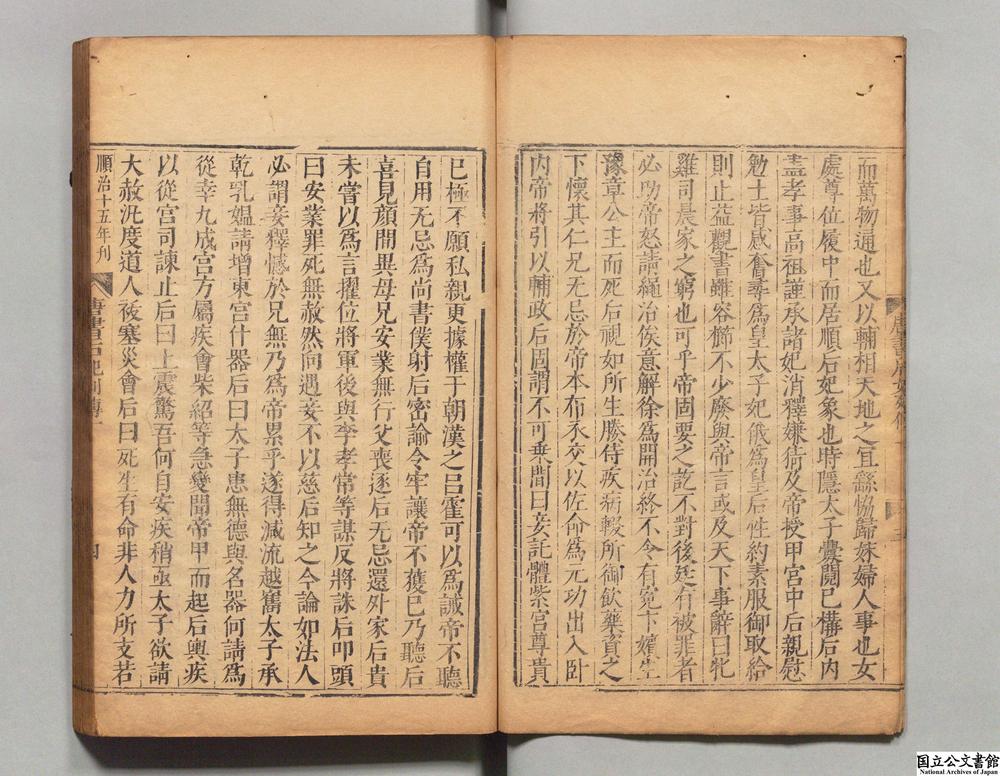 而萬物通也又以輔相天地之宜繇協歸妹婦人事也女
處尊位履中而居順后妃象也時隱太子釁鬩已構后內
盡孝事高祖謹承諸妃消釋嫌猜及帝授甲宮中后親慰
勉士皆感奮尋爲皇太子妃俄爲皇后性約素服御取給
則止益觀書雖容櫛不少廢與帝言或及天下事辭曰牝
雞司晨家之窮也可乎帝固要之訖不對後廷有被罪者
必助帝怒請繩治俟意解徐爲開治終不令有寃下嬪生
豫章公主而死后視如所生媵侍疾病輟所御飲藥資之
下懷其仁兄无忌於帝本布衣交以佐命爲元功出入臥
內帝將引以輔政后固謂不可乘間曰妾託體紫宮尊貴
已極不願私親更據權于朝漢之呂霍可以爲誡帝不聽
自用无忌爲尚書僕射后密諭令牢讓帝不獲已乃聽后
喜見顏間異母兄安業無行父喪逐后无忌還外家后貴
未嘗以爲言擢位將軍後與李孝常等謀反將誅后叩頭
曰安業罪死無赦然向遇妾不以慈后知之今論如法人
必謂妾釋憾於兄無乃爲帝累乎遂得減流越巂太子承
乾乳媼請增東宮什器后曰太子患無德與名器何請爲
從幸九成宮方屬疾會柴紹等急變聞帝甲而起后輿疾
以從宮司諫止后曰上震驚吾何自安疾稍亟太子欲請
大赦汎度道人祓塞災會后曰死生有命非人力所支若
順治十五年刊
唐書后妃列傳一
四
国立公文書館
National Archives of Japan